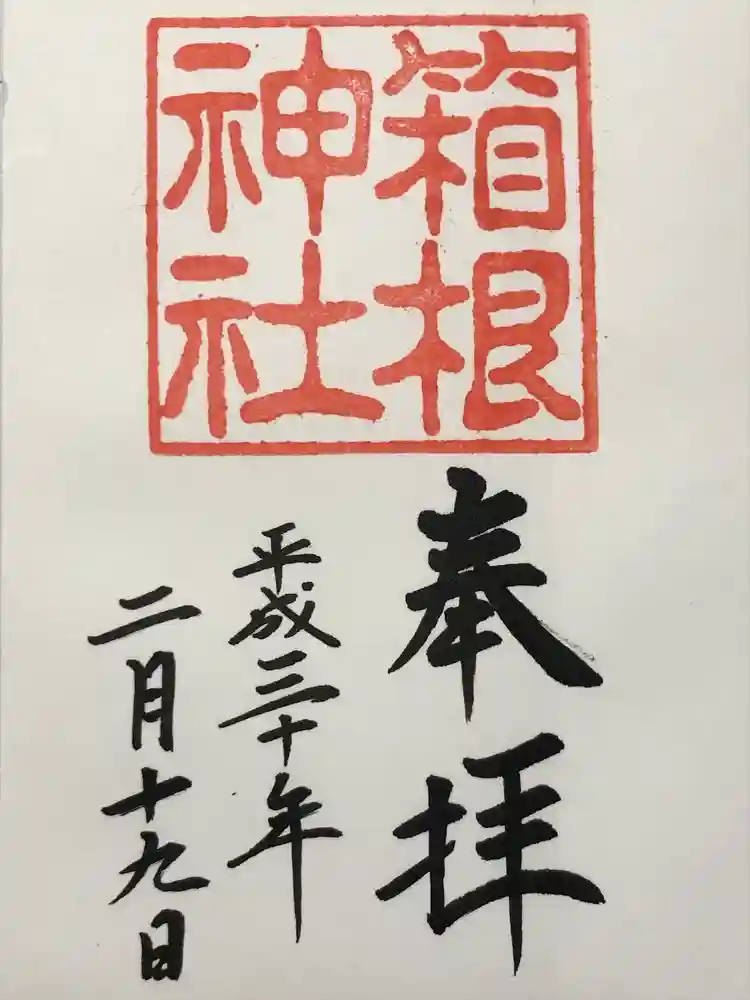 箱根
神社
奉拝
平成三十年
二月十九日